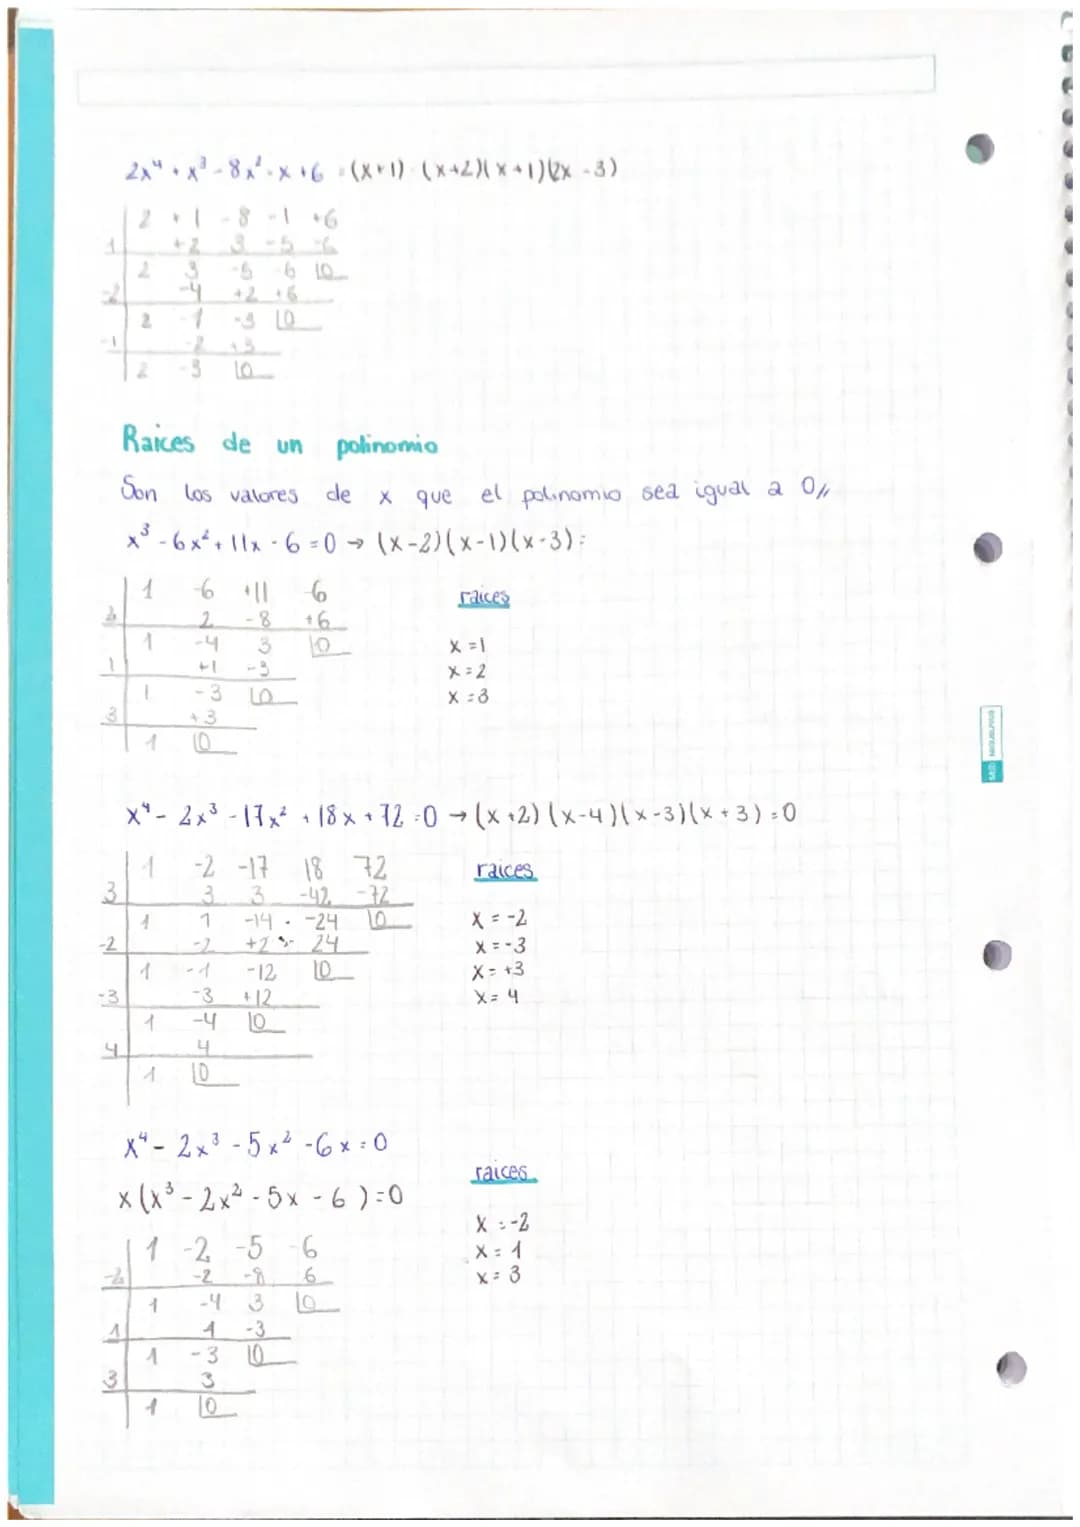 2x⁴ + x³ - 8x² - x + 6 = (x+1) · (x+2)(x+1)(2x-3)
2 +1 -8 -1 +6
1 +2 3 -5 -6
2 3 -5 -6 |0
-2 -4 +2 +6
2 -1 -3 |0
-1 -2 +3
2 -3 |0
Raices de un polinomio
Son los valores de x que el polinomio sea igual a 0//
x³ - 6x² + 11x - 6 = 0 → (x-2)(x-1)(x-3) =
1 -6 +11 -6 raices
2 2 -8 +6
1 -4 3 |0 x = 1
1 +1 -3 x = 2
1 -3 |0 x = 3
3 +3
1 |0
x⁴ - 2x³ - 17x² + 18x + 72 = 0 → (x+2)(x-4)(x-3)(x+3) = 0
1 -2 -17 18 72 raices
3 3 3 -42 -72
1 1 -14 -24 |0 x = -2
-2 -2 +2 24 x = -3
1 -1 -12 |0 x = +3
-3 -3 +12 x = 4
1 -4 |0
4 4
1 |0
x⁴ - 2x³ - 5x² - 6x = 0
raices
x(x³ - 2x² - 5x - 6) = 0
x = -2
1 -2 -5 -6 x = 1
-2 -2 -8 6 x = 3
1 -4 3 |0
1 1 -3
1 -3 |0
3 3
1 |0
MIQUELRIUS